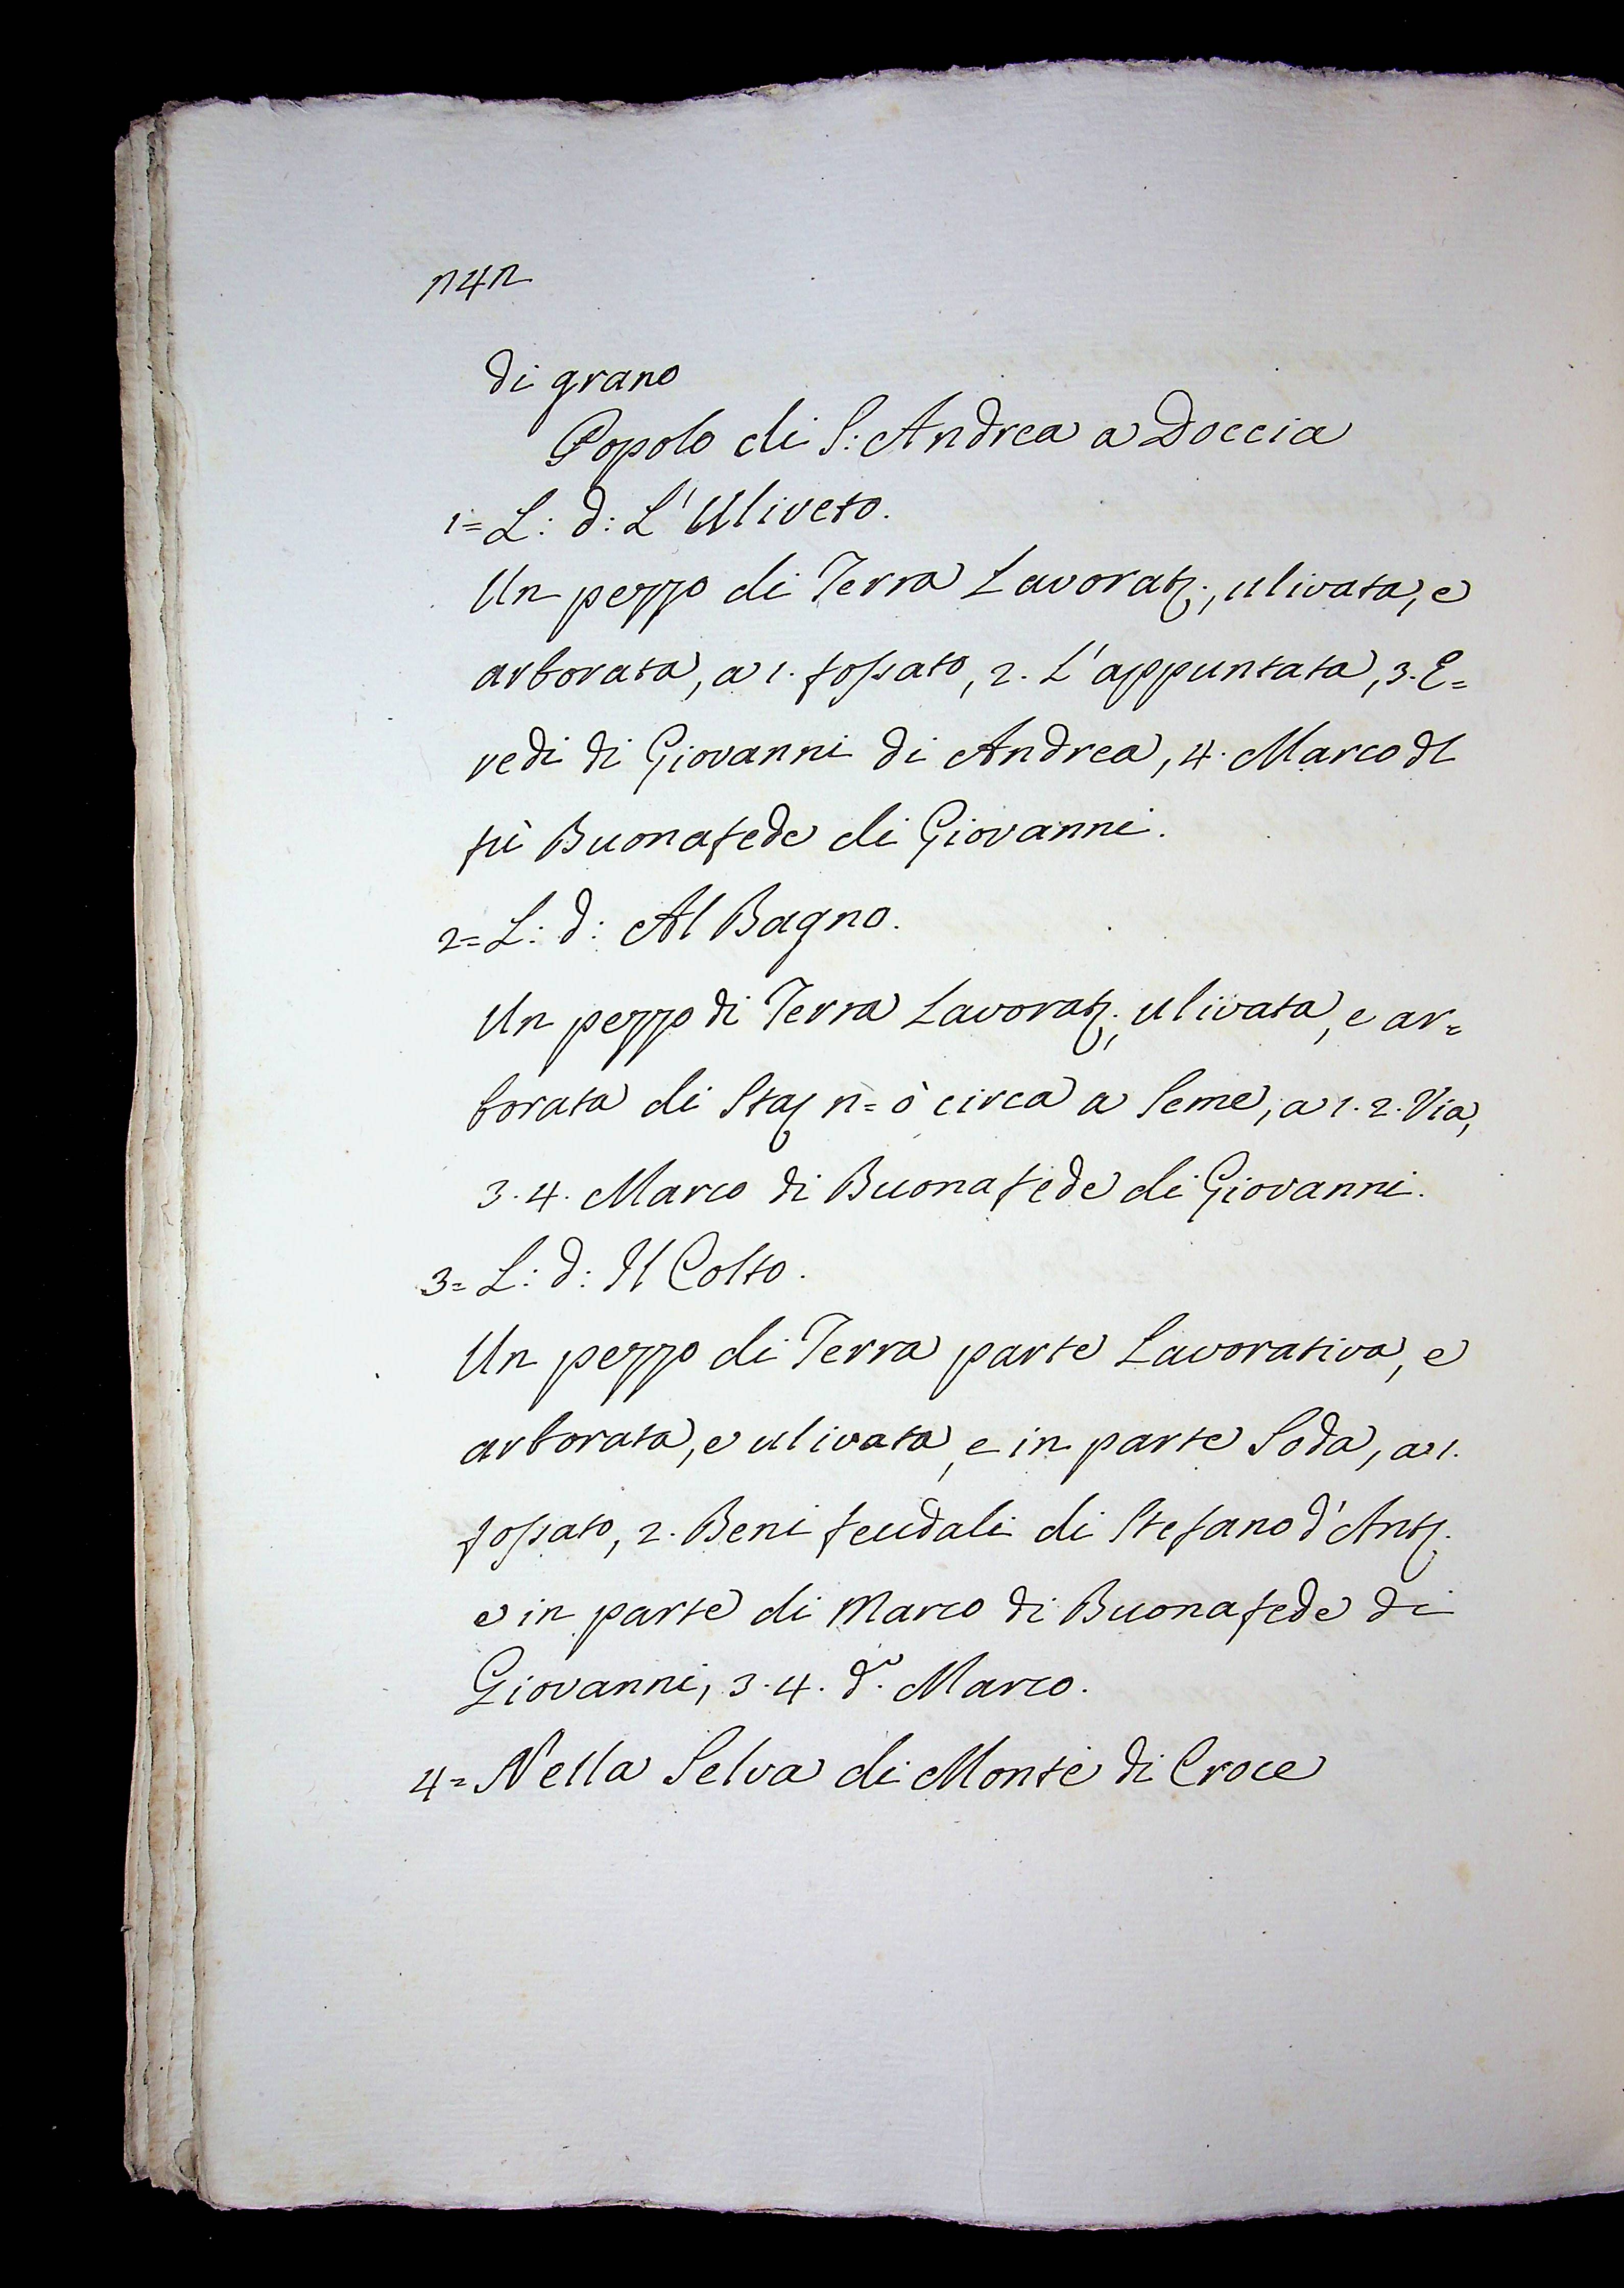 n4n
di grano
Popolo di S: Andrea a Doccia
1= L: d: L'Uliveto.
Un pezzo di Terra Lavorat;, ulivata, e
arborata, a 1. fossato, 2. L'appuntata, 3. E=
redi di Giovanni di Andrea, 4. Marco dl
fù Buonafede di Giovanni.
2= L: d: Al Bagno.
Un pezzo di Terra Lavorat; ulivata, e ar=
borata di Sta n= ò circa a Seme, a 1. 2. Via,
3. 4. Marco di Buonafede di Giovanni.
3= L: d: Il Colto.
Un pezzo di Terra parte Lavorativa, e
arborata, e ulivata, e in parte Soda, a 1.
fossato, 2. Beni feudali di Stefano d'Ant.
e in parte di Marco di Buonafede di
Giovanni, 3. 4. d.º Marco.
4= Nella Selva di Monte di Croce